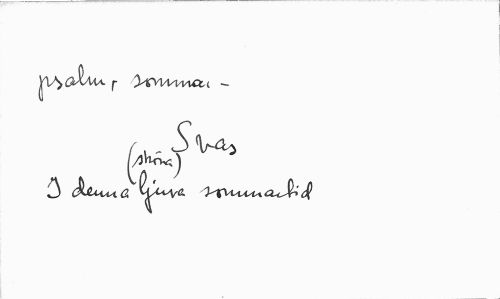 psalm, sommar -
Svas
(sköna)
I denna ljuva sommartid